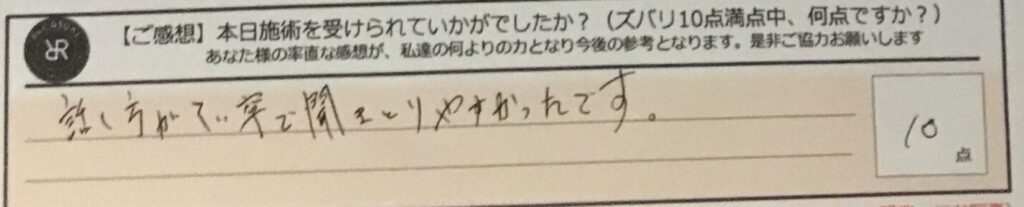 【ご感想】本日施術を受けられていかがでしたか？（ズバリ10点満点中、何点ですか？）
あなた様の率直な感想が、私達の何よりの力となり今後の参考となります。是非ご協力お願いします
話し方がてい寧で聞きとりやすかったです。
10
点